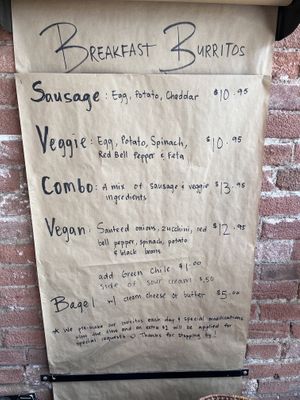 Breakfast Burritos
Sausage: Egg, Potato, Cheddar $10.95
Veggie: Egg, Potato, Spinach, $10.95
Red Bell Pepper & Feta
Combo: A mix of sausage & veggie $13.95
ingredients
Vegan: Sauteed onions, zucchini, red $12.95
bell pepper, spinach, potato
& black beans
add Green Chile $1.00
side of sour cream $.50
Bagel w/ cream cheese or butter $5.00
* We pre-make our burritos each day & special modifications
slow the line and an extra $2 will be applied for
special requests Thanks for stopping by!